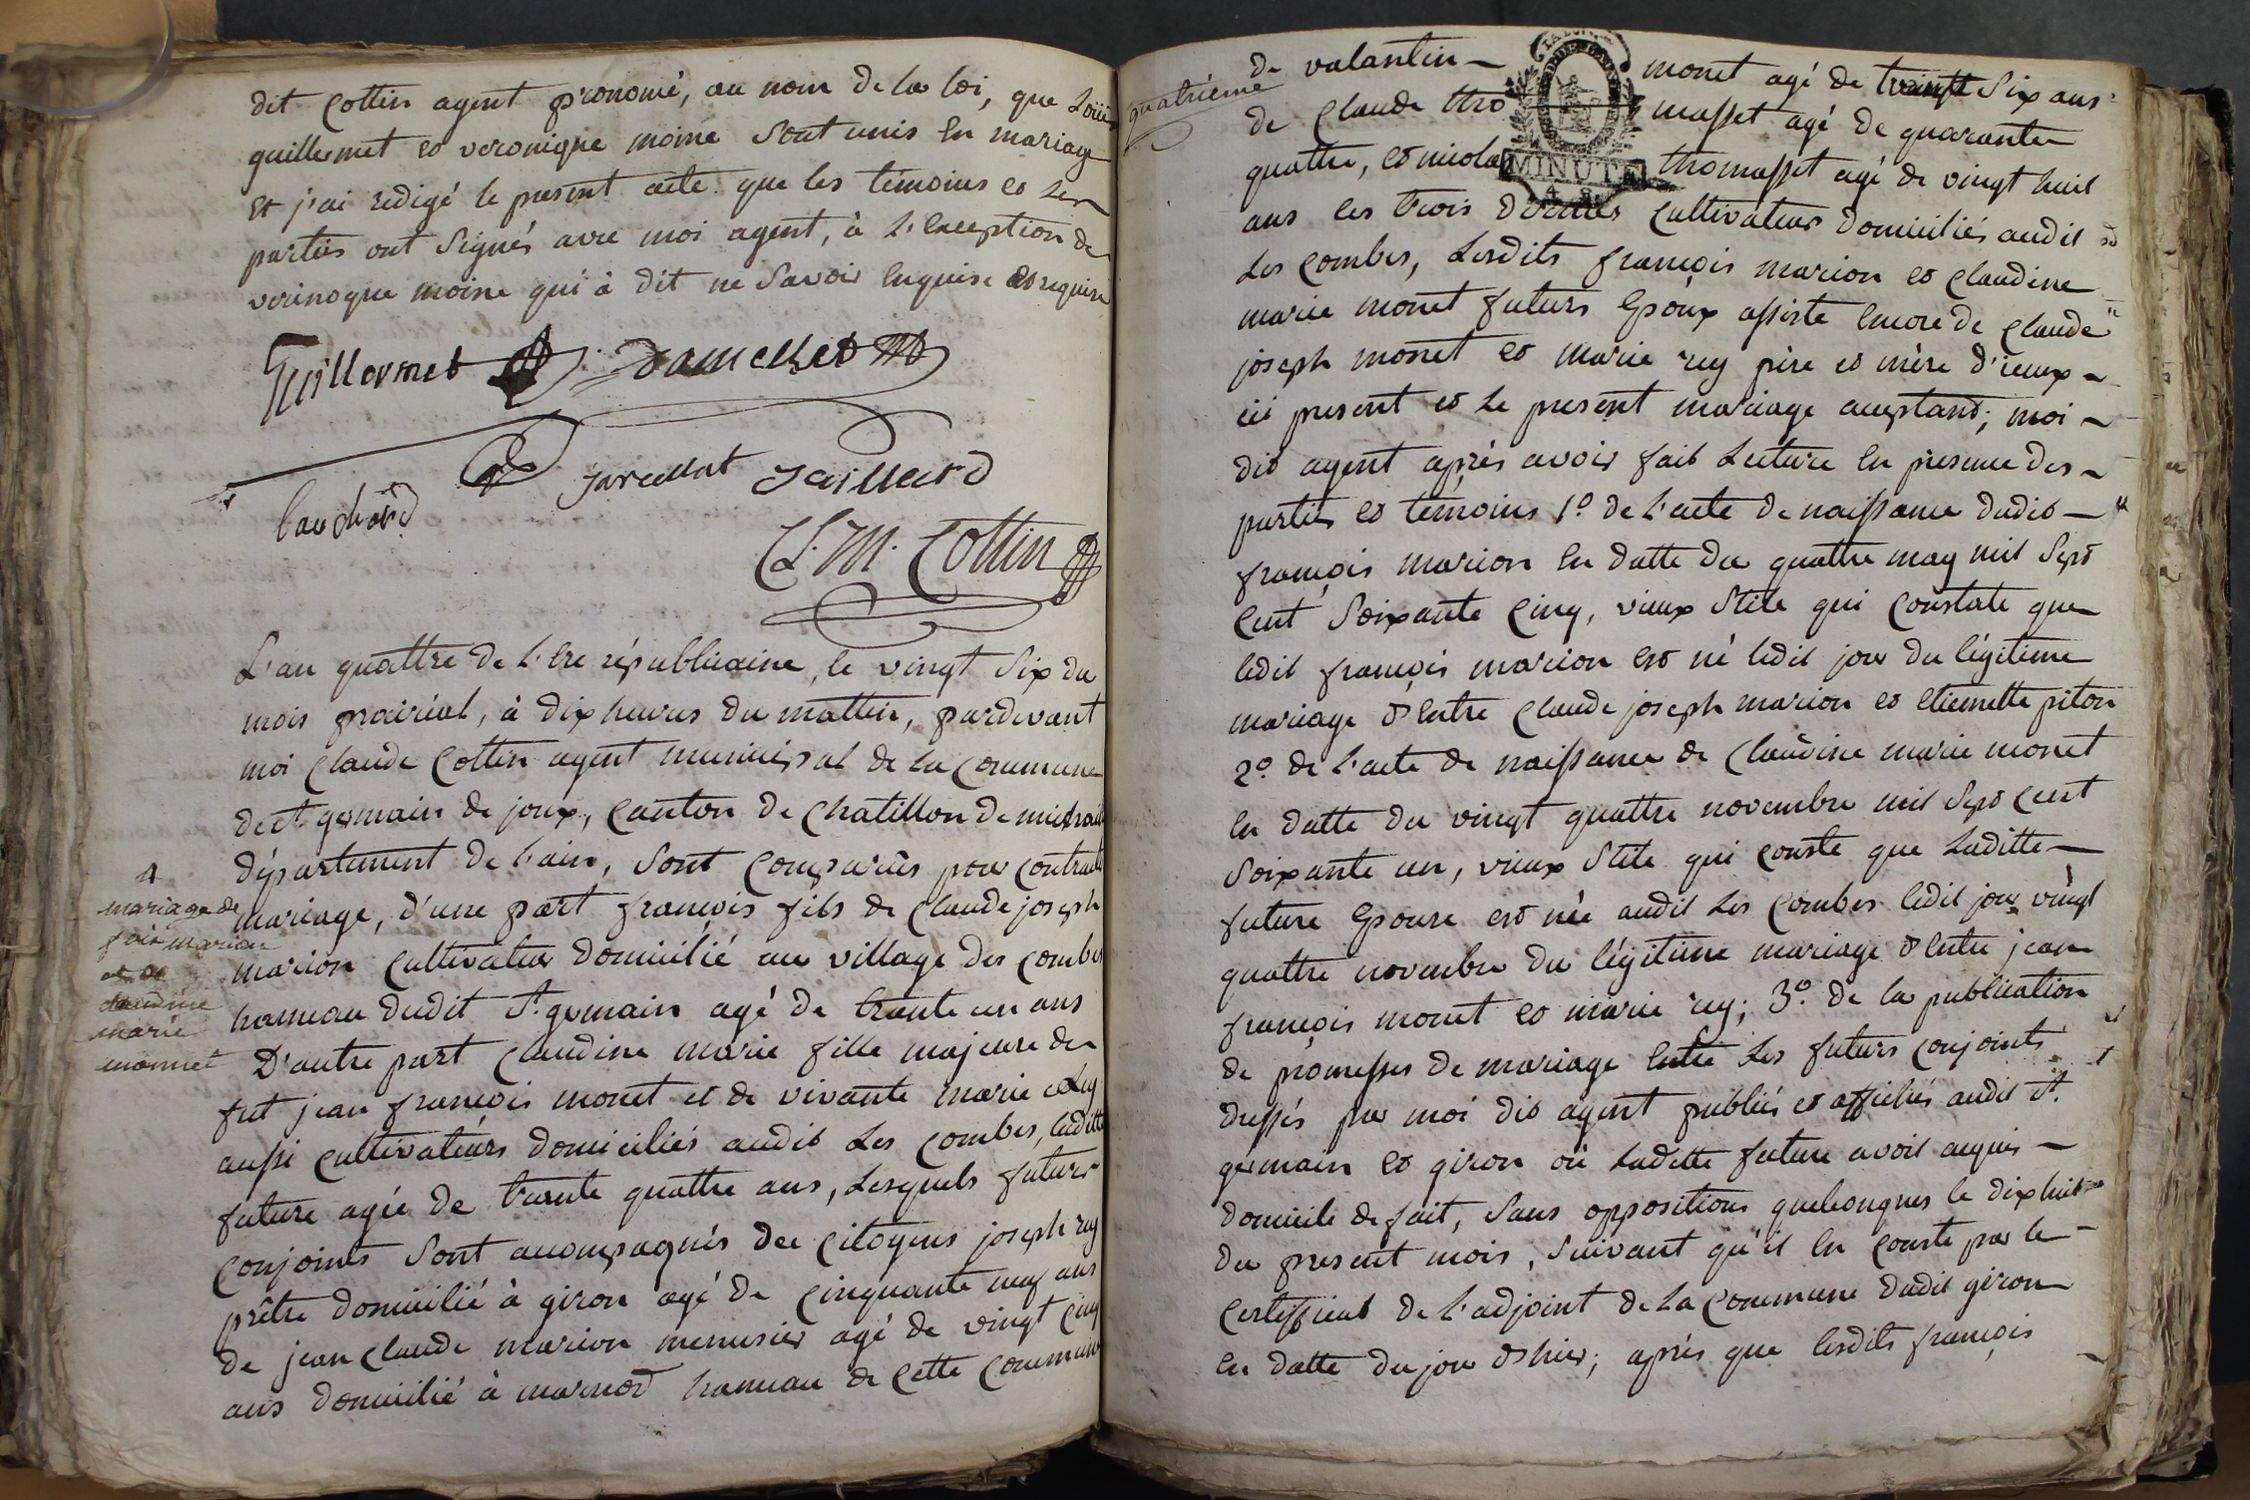 dit Cottin agent prenomé, au nom de la loi, que Loüis
guillermet et veronique moine Sont unis en mariage
et j'ai redigé le present acte que les témoins et les
parties ont Signés avec moi agent, à L'exception de
verinoque moine qui à dit ne Savoir enquise et requise
Guillermet Damelhet
bauchard Jarcellat Jaillard
C. M. Cottin
L'an quattre de L'ere républicaine, le vingt Six du
mois prairial, à dix heures du mattin, pardevant
moi Claude Cottin agent municipal de la Commune
de St germain de joux, Canton de Chatillon de michaille
département de l'ain, Sont Comparus pour contracter
mariage, d'une part françois fils de Claude joseph
marion Cultivateur domicilié au village des combes
hameau dudit St. germain agé de trente un ans
D'autre part Claudine marie fille majeure de
fut jean françois monet et de vivante marie Rey
aussi cultivateurs domiciliés audit Les combes, laditte
future agée de trente quattre ans, Lesquels futurs
Conjoints Sont acompagnés des Citoyens joseph rey
prêtre domicilié à giron agé de Cinquante neuf ans
de jean Claude marion menusier agé de vingt cinq
ans domicilié à marnod hameau de Cette Commune
4
mariage de
fois marion
et de
claudine
marie
monnet
quatriéme
de valantin monet agé de trente Six ans
de Claude thomasset agé de quarante
quattre, et nicolas thomasset agé de vingt huit
MINUTE
ans les trois derniers Cultivateurs domiciliés audit
Les Combes, Lesdits françois marion et Claudine
marie monet futurs Epoux assisté encore de Claude
joseph monet et marie rey père et mère d'iceux
ici present et Le present mariage acceptant; moi
dit agent après avoir fait Lecture en presence des
parties et témoins 1.º de L'acte de naissance dudit
françois marion en datte du quattre may mil Sept
Cent Soixante Cinq, vieux Stile qui Constate que
ledit françois marion est né ledit jour du légitime
mariage d'entre Claude joseph marion et etiennette piton
2.º de l'acte de naissance de Claudine marie monet
en datte du vingt quattre novembre mil Sept Cent
Soixante un, vieux Stile qui Conste que Laditte
future Epouse est née audit Les Combes ledit jour vingt
quattre novembre du légitime mariage d'entre jean
françois monet et marie rey; 3.º de la publication
de promesses de mariage Entre Les futurs Conjoints
dressés par moi dit agent publiés et affichés audit St.
germain et giron où Laditte future avoit acquis
domicile de fait, Sans oppositions quelconques le dix huit
du present mois, Suivant qu'il en conste par le
Certifficat de L'adjoint de La Commune dudit giron
en datte du jour d'hier; après que lesdits françois